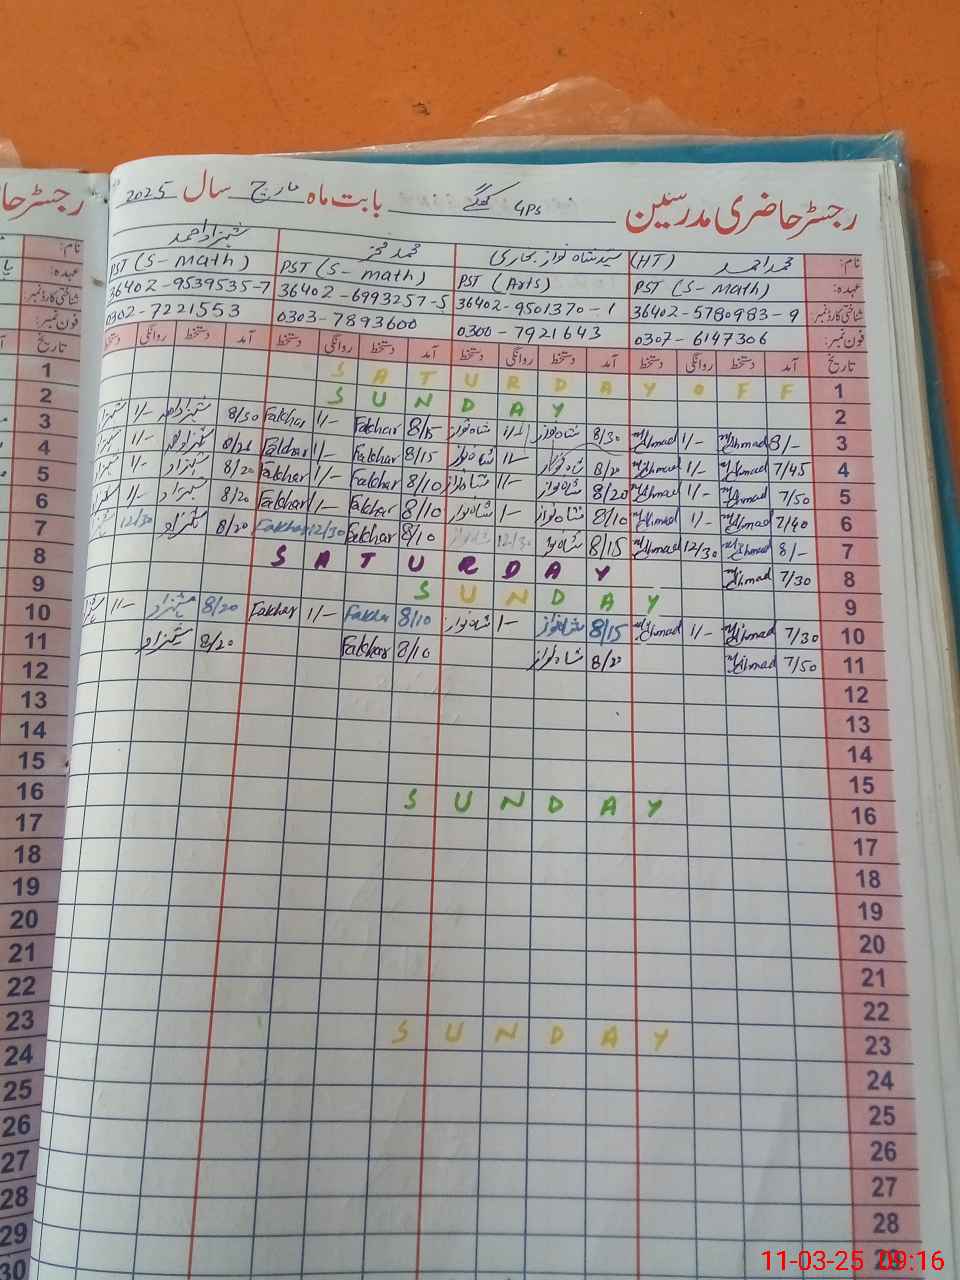 رجسٹر حاضری مدرسین GPS بابت ماہ مارچ سال 2025
نام: محمد احمد (HT) سید شاہ نواز بخاری محمد فخر شہزاد احمد
عہدہ: PST (S-math) PST (Arts) PST (S-math) PST (S-math)
شناختی کارڈ نمبر: 36402-5780983-9 36402-9501370-1 36402-6993257-5 36402-9539535-7
فون نمبر: 0307-6147306 0300-7921643 0303-7893600 0302-7221553
تاریخ آمد دستخط روانگی دستخط آمد دستخط روانگی دستخط آمد دستخط روانگی دستخط آمد دستخط روانگی
1 SATURDAY OFF
2 SUNDAY
3 8/- M Ahmad 1/- M Ahmad 8/30 شاہ نواز 1/- شاہ نواز 8/15 Fakhar 1/- Fakhar 8/30 شہزاد احمد 1/-
4 7/45 M Ahmad 1/- M Ahmad 8/20 شاہ نواز 1/- شاہ نواز 8/15 Fakhar 1/- Fakhar شہزاد احمد 1/-
5 7/50 M Ahmad 1/- M Ahmad 8/20 شاہ نواز 1/- شاہ نواز 8/10 Fakhar 1/- Fakhar 8/20 شہزاد 1/-
6 7/40 M Ahmad 1/- M Ahmad 8/10 شاہ نواز 1/- شاہ نواز 8/10 Fakhar 1/- Fakhar 8/20 شہزاد 1/-
7 8/- M Ahmad 12/30 M Ahmad 8/15 شاہ نواز 12/30 8/10 Fakhar 12/30 Fakhar 8/20 شہزاد 12/30
8 7/30 M Ahmad SATURDAY
9 SUNDAY
10 7/30 M Ahmad 1/- M Ahmad 8/15 شاہ نواز 1/- شاہ نواز 8/10 Fakhar 1/- Fakhar 8/20 شہزاد 1/-
11 7/50 M Ahmad 8/20 شاہ نواز 8/10 Fakhar 8/20 شہزاد
12
13
14
15
16 SUNDAY
17
18
19
20
21
22
23 SUNDAY
24
25
26
27
28
29
11-03-25 09:16